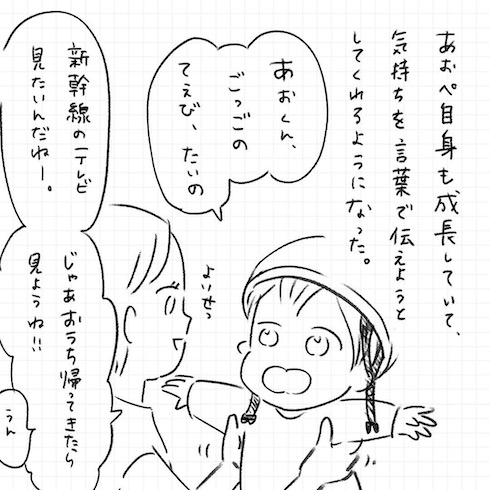 あおぺ自身も成長していて、
気持ちを言葉で伝えようと
してくれるようになった。
あおくん、
ごっごの
てえび、たいの
新幹線のテレビ
見たいんだねー。
じゃあおうち帰ってきたら
見ようね!!
うん
よいせっ